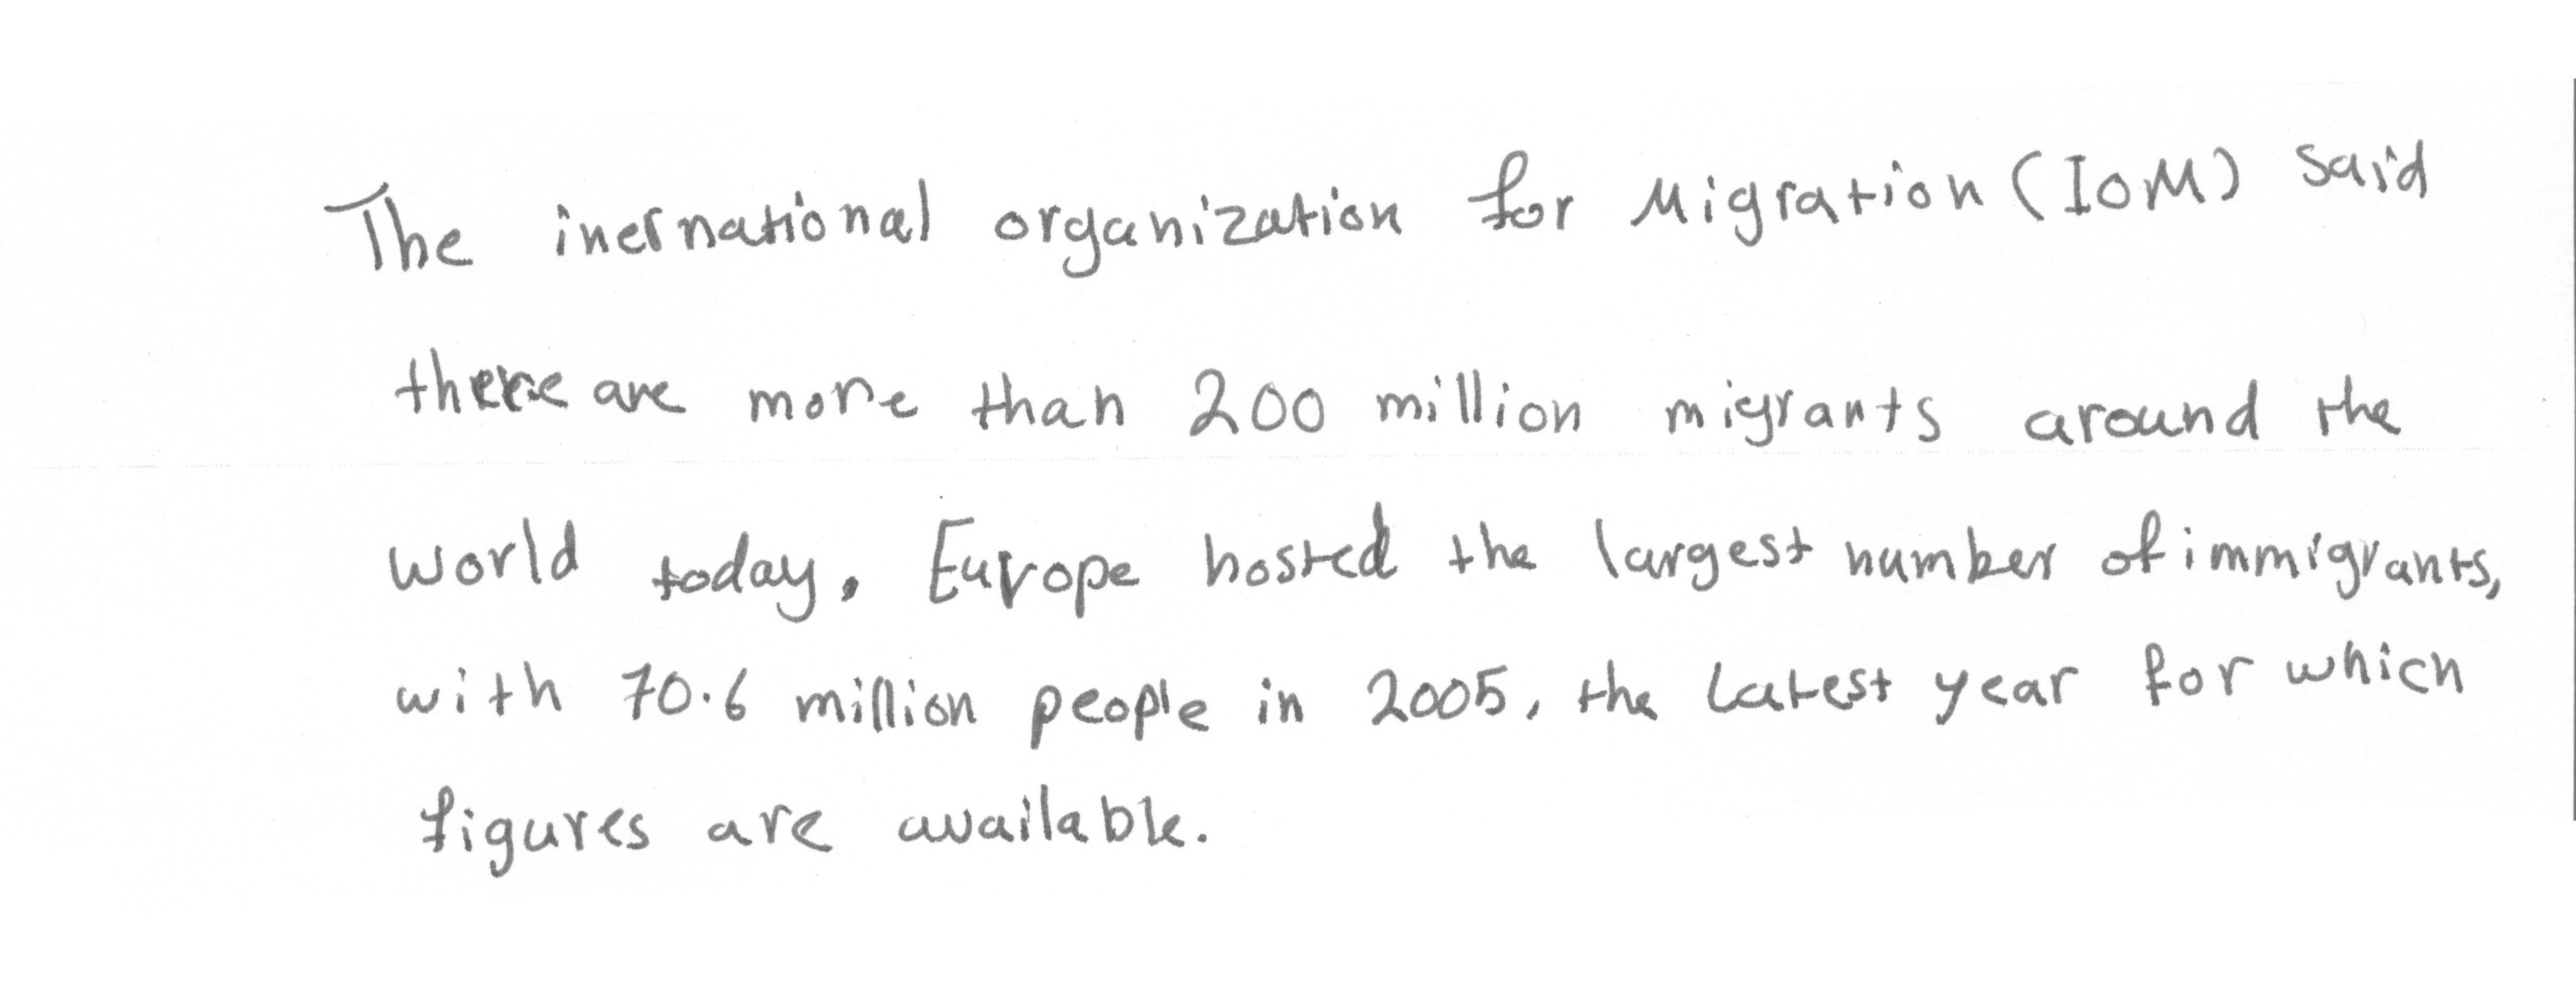 The inernational organization for Migration (IOM) said
there are more than 200 million migrants around the
world today. Europe hosted the largest number of immigrants,
with 70.6 million people in 2005, the latest year for which
figures are available.